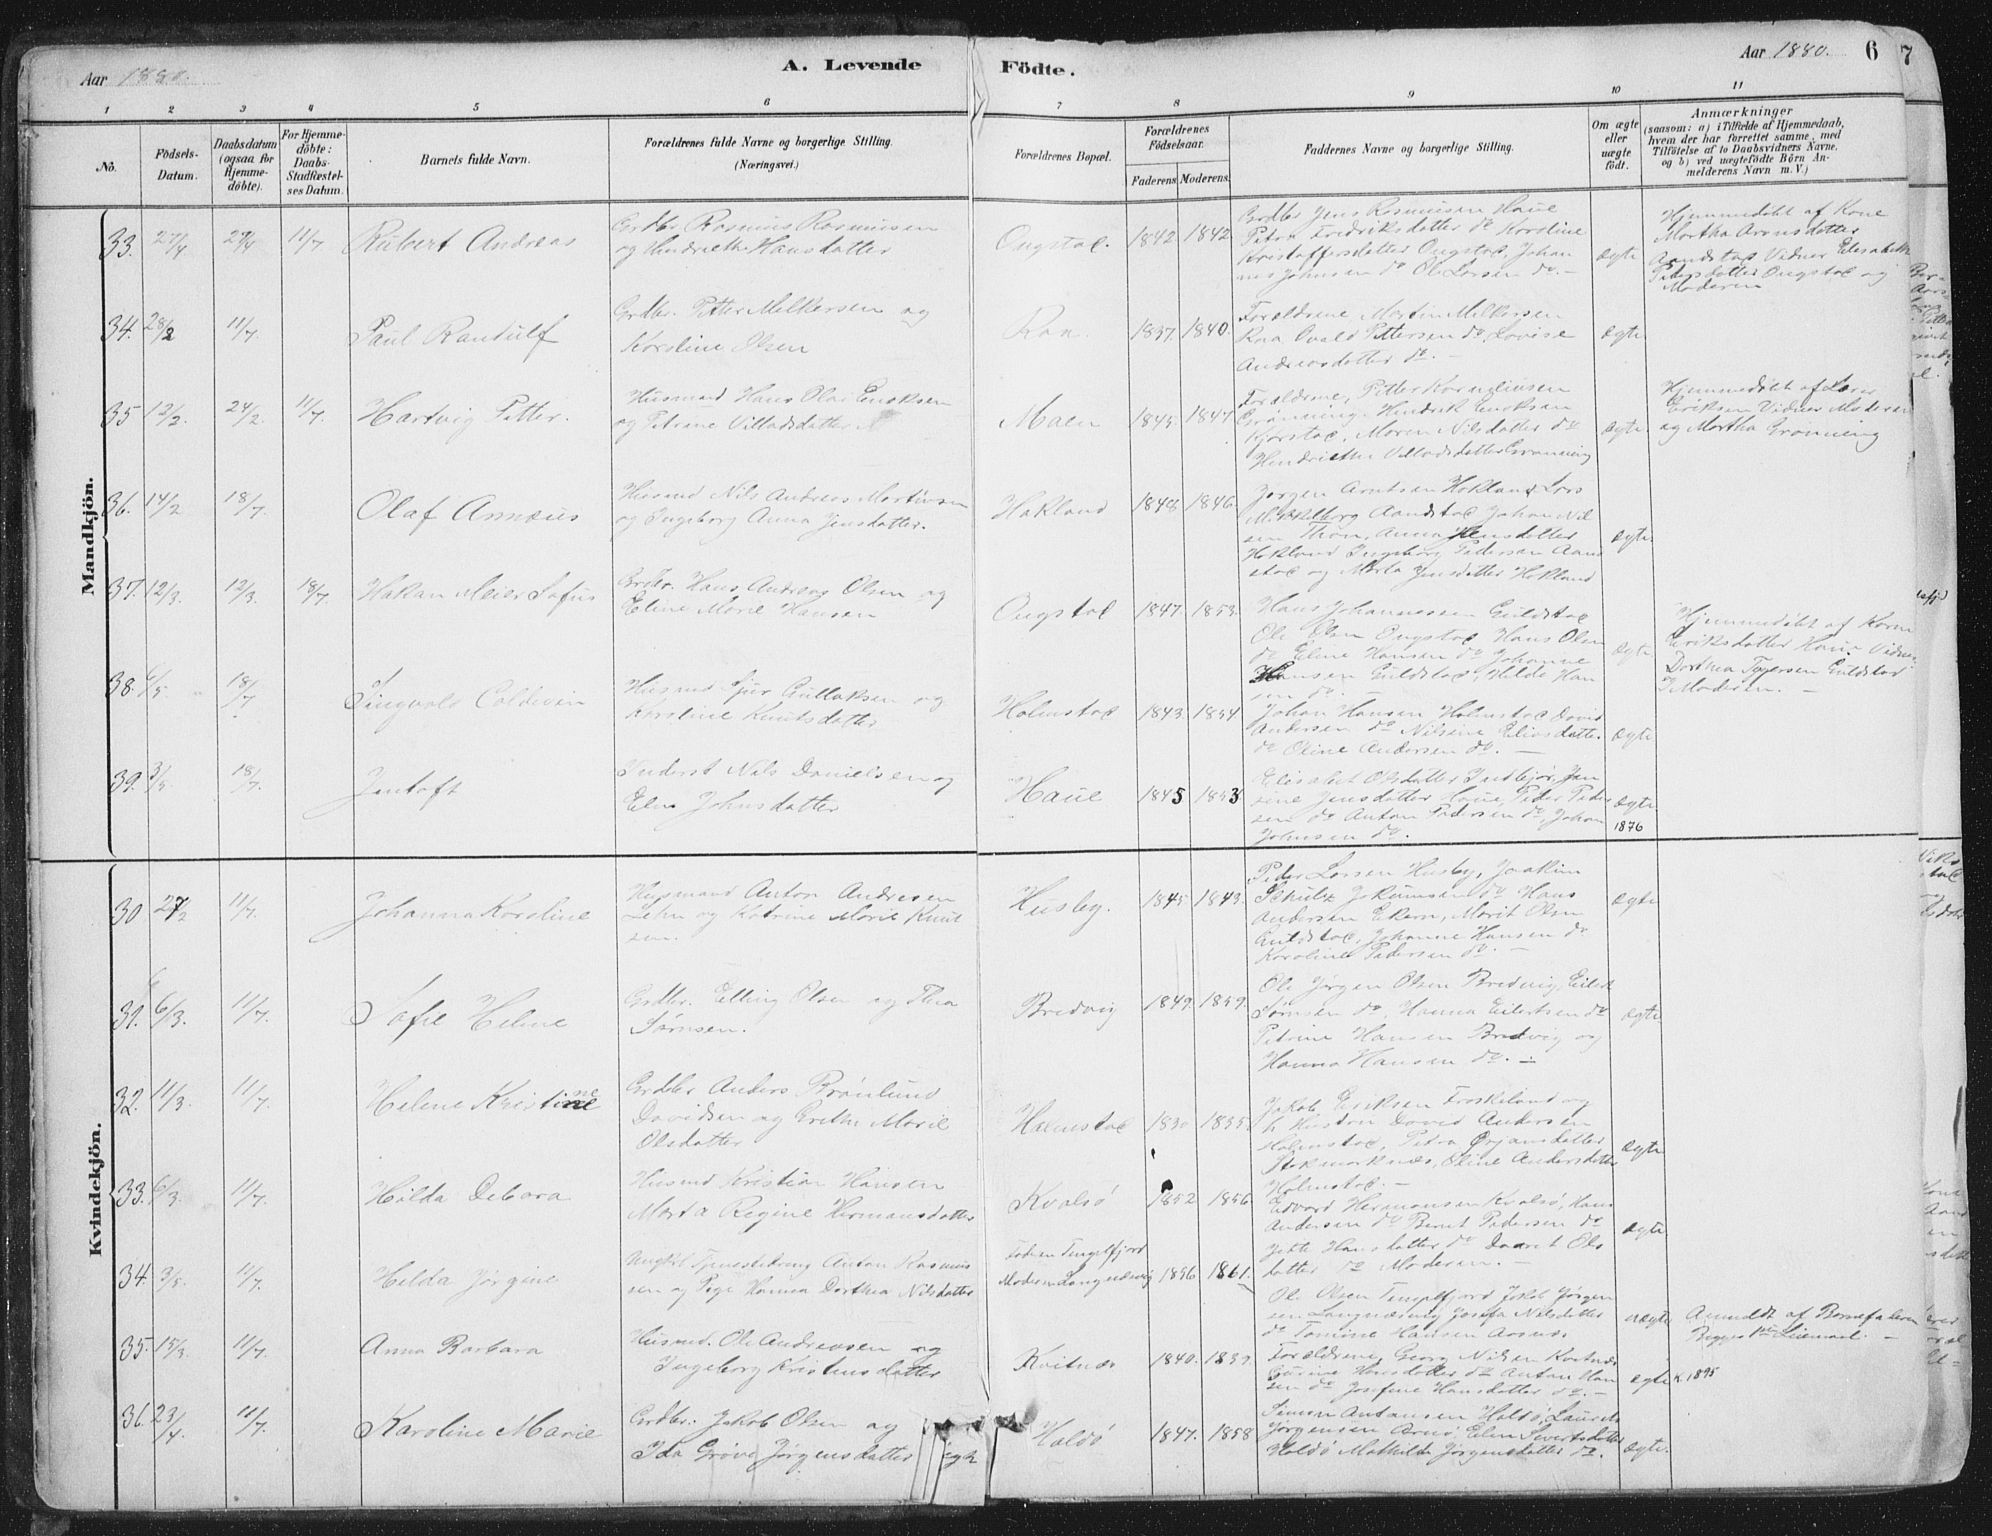 Aar 1880.
A. Levende Födte.
Aar 1880. 6
7
1 2 3 4 5 6 7 8 9 10 11
No.
Födsels-Datum.
Daabsdatum (ogsaa for Hjemme-döbte).
For Hjemme-döbte: Daabs-Stadfæstel-ses Datum.
Barnets fulde Navn.
Forældrenes fulde Navne og borgerlige Stilling. (Næringsvei.)
Forældrenes Bopæl.
Forældrenes Födselsaar.
Faderens. Moderens.
Faddernes Navne og borgerlige Stilling.
Om ægte eller uægte födt.
Anmærkninger (saasom: a) i Tilfælde af Hjemmedaab, hvem der har forrettet samme, med Tilföielse af to Daabsvidners Navne, og b) ved uægtefödte Börn An-melderens Navn m. V.)
Mandkjön.
33. 27/4 27/4 11/7 Rubert Andreas
Grdbr Rasmus Rasmussen
og Hendriette Hansdatter
Ongstad. 1842 1842
Grdbr Jens Rasmussen Haue
Petra Fredriksdatter do Karoline
Kristoffersdatter Ongstad, Johan
nes Johnsen do Ole Larsen do. –
ægte
Hjemmedøbt af Kone
Martha Aronsdatter
Aandstad Vidner Elisabeth
Pedersdatter Ongstad og
Moderen
34. 28/2 11/7 Paul Randulf
Grdbr. Petter Melkersen og
Karoline Olsen
Raa. 1837. 1840.
Forældrene Martin Melkersen
Raa Ovald Pettersen do, Lovise
Andreasdatter do. –
ægte
35 12/2. 24/2 11/7. Hartvig Petter.
Husmand Hans Olai Eriksen
og Petrine Villadsdatter
Maen 1845. 1847
Forældrene, Petter Korneliussen
Grønning, Hendrik Eriksen
Kjørstad, Maren Nilsdatter do
Hendriette Villadsdatter Grønning
ægte.
Hjemmedøbt af Lars
Eriksen Vidner Moderen
og Martha Grønning
36. 14/2 18/7. Olaf Annæus
Husmd Nils Andreas Martinsen
og Ingeborg Anna Jensdatter.
Hokland 1848 1846.
Jørgen Arntsen Hokland Lars
Mikkelborg Aandstad Johan Nil
sen Thøn, Anna Jensdatter
Hokland Ingeborg Pedersen Aand
stad og Marta Jensdatter Hokland
ægte.
37. 12/3. 12/3. 18/7. Hakan Meier Sofus
Grdbr. Hans Andreas Olsen og
Eline Marie Hansen
Ongstad 1847. 1853.
Hans Johannessen Guldstad
Ole Olsen Ongstad, Hans Olsen
do Eline Hansen do Johanne
Hansen Guldstad, Hilda Han
sen do. –
ægte
Hjemmedøbt af Karen
Eriksdatter Haue Vidner
Dorthea Tygersen Guldstad
Moderen. –
38. 6/5 18/7. Singvald Coldevin
Husmd Sjur Gullaksen og
Karoline Knutsdatter
Holmstad 1843. 1854
Johan Hansen Holmstad David
Andersen do Nilsine Eliasdatter
do Oline Andersen do. –
ægte
39. 3/5. 18/7. Jentoft
Inderst Nils Danielsen og
Elen Johnsdatter
Haue 1845 1853
Elisabet Olsdatter Indbjør, Jen
sine Jensdatter Haue, Peder Peder
sen do Anton Pedersen do, Johan
Johnsen do.
ægte
1876
Kvindekjön.
30 27/2 11/7. Johanna Karoline
Husmand Anton Andresen
Lehn og Katrine Marie Knut
sen.
Husby. 1845. 1843.
Peder Larsen Husby, Joakim
Schultz Jokumsen do Hans
Andersen Ekern, Marit Olsen
Guldstad, Johanne Hansen do
Karoline Pedersen do. –
ægte
31. 6/3. 11/7. Sofie Helene
Grdbr. Elling Olsen og Thea
Sørnsen.
Bredvig 1849. 1859.
Ole Jørgen Olsen Bredvig, Eilert
Sørnsen do, Hanna Eilertsen do
Petrine Hansen Bredvig og
Hanna Hansen do. –
ægte
32. 11/3. 11/7. Helene Kristine
Grdbr Anders Brønlund
Davidsen og Grethe Marie
Olsdatter
Holmstad 1830 1835.
Jakob Eriksen Froskeland og
h Hustru David Andersen
Holmstad, Petra Ørjansdatter
Stokmarknæs, Oline Andersdatter
Holmstad. –
ægte
33. 6/3. 11/7. Hilda Debora
Husmd Kristian Hansen
Marta Regine Hermansdatter
Kvalsø 1852 1856
Edvard Hermansen Kvalsø, Hans
Andersen do Berit Pedersen do
Jette Hansdatter do Daaret Ols
datter do Moderen. –
ægte
34. 3/5. 11/7. Hilda Jørgine
Ungkl Tjenestedreng Anton Rasmus
sen og Pige Hanna Dorthea Nilsdatter
Faderen Tengelfjord
Moderen Langnæsvig 1856 1861.
Ole Olsen Tengelfjord Jakob Jørgen
sen Langnæsvig Josefa Nilsdatter
do Tomine Hansen Aarnæs
uægte
Anmeldt af Barnefaderen
35. 15/3. 11/7. Anna Barbara
Husmd. Ole Andreasen og
Ingeborg Kristensdatter
Kvitnæs 1840. 1839.
Forældrene, Georg Nilsen Kvitnæs
Gurine Hansdatter do Anton Han
sen do Josefine Hansdatter do. –
ægte k. 1895
36. 23/4 11/7. Karoline Marie
Grdbr. Jakob Olsen og
Ida Grøva Jørgensdatter
Haldø 1847. 1858
Simon Antonsen Haldø, Laurits
Jørgensen Arnø, Elen Sivertsdatter
Haldø Mathilde Jørgensdatter do.
ægte.